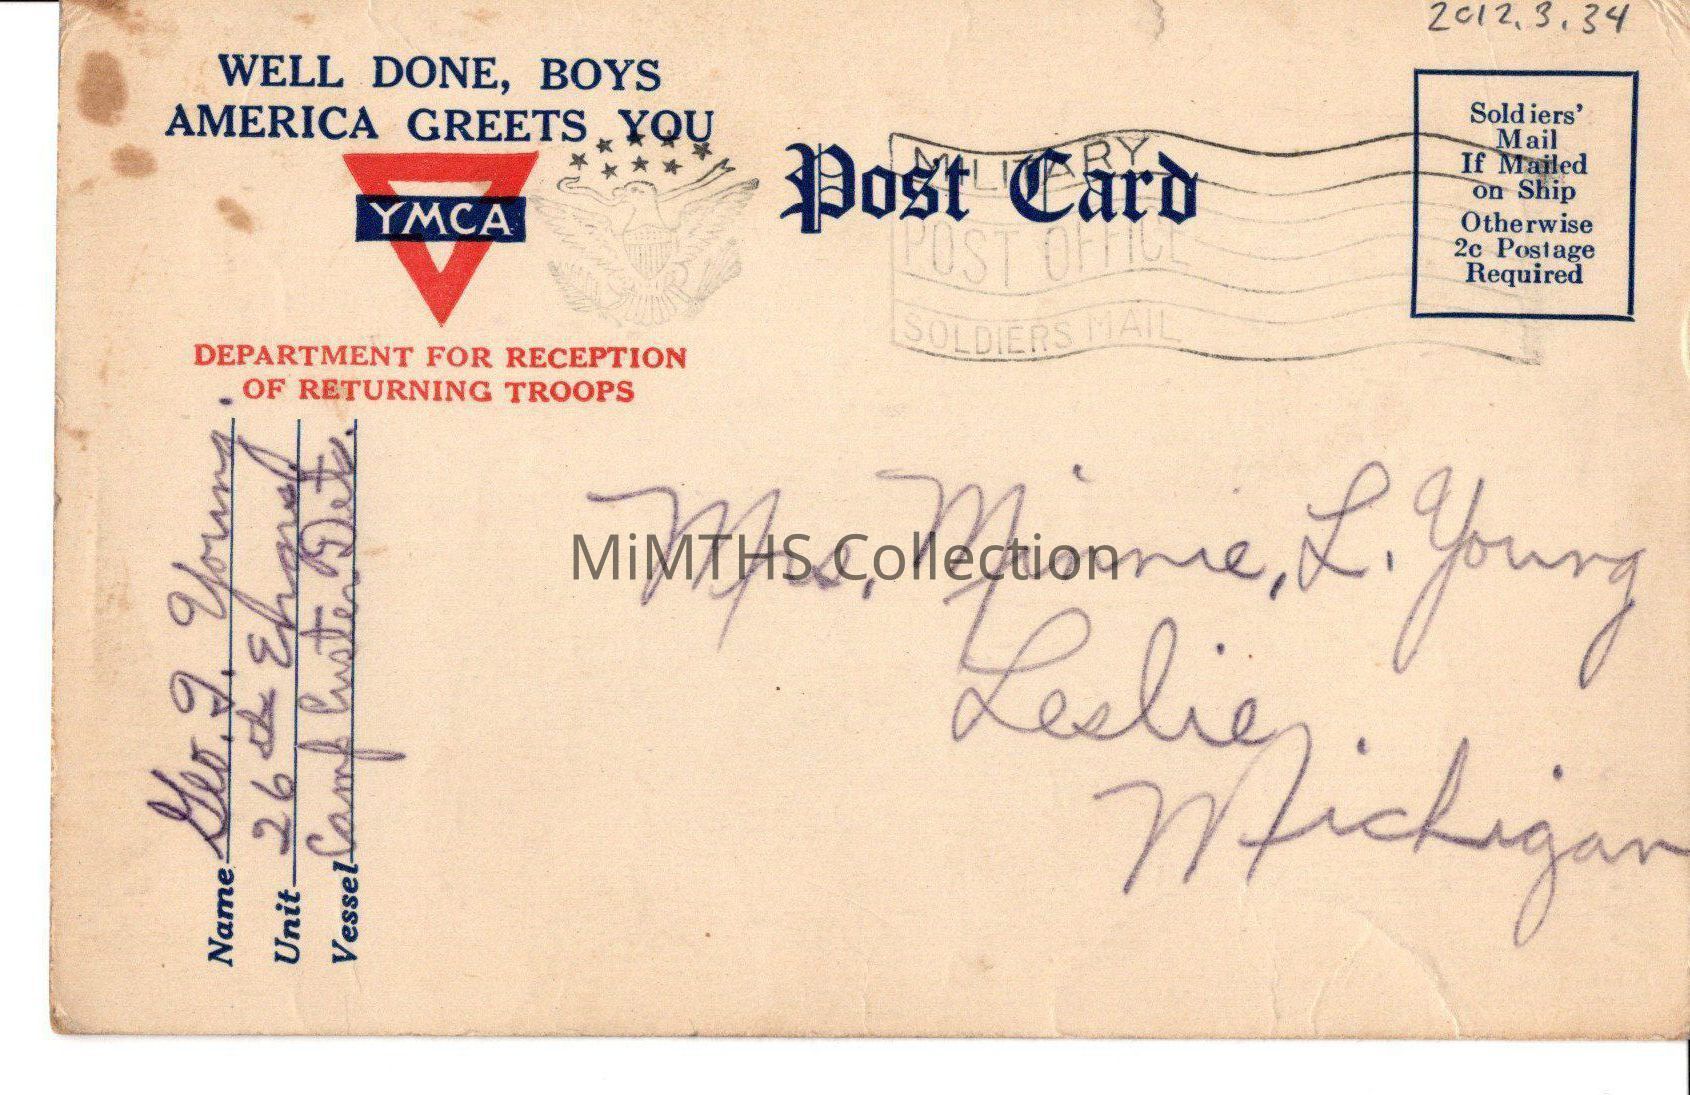 2012.3.34
WELL DONE, BOYS
AMERICA GREETS YOU
YMCA
DEPARTMENT FOR RECEPTION
OF RETURNING TROOPS
Post Card
MILITARY
POST OFFICE
SOLDIERS MAIL
Soldiers'
Mail
If Mailed
on Ship
Otherwise
2c Postage
Required
Name Geo. F. Young.
Unit 26th Engrs.
Vessel Camp Custer Det.
Mrs, Minnie, L. Young
Leslie,
Michigan
MiMTHS Collection